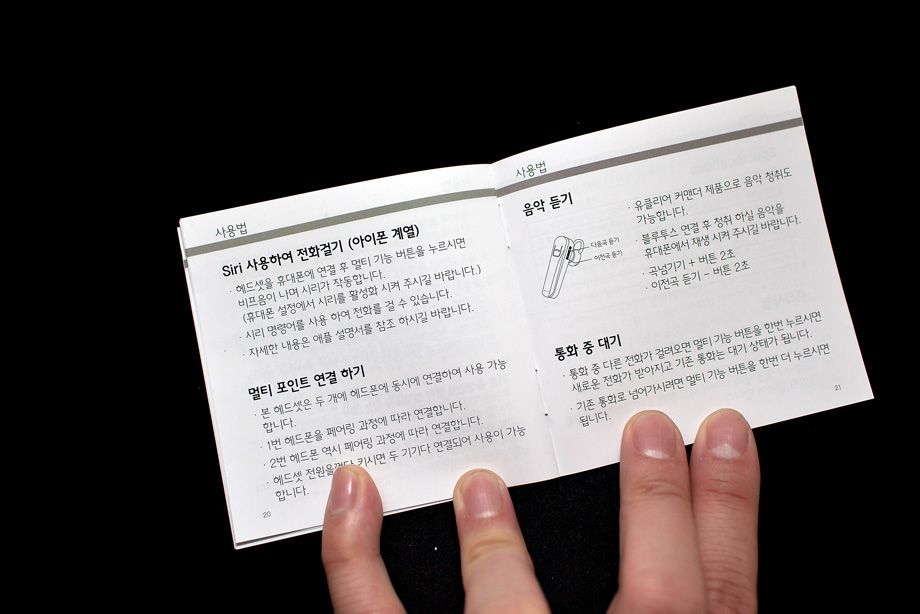 사용법
Siri 사용하여 전화걸기 (아이폰 계열)
· 헤드셋을 휴대폰에 연결 후 멀티 기능 버튼을 누르시면
비프음이 나며 시리가 작동합니다.
(휴대폰 설정에서 시리를 활성화 시켜 주시길 바랍니다.)
· 시리 명령어를 사용 하여 전화를 걸 수 있습니다.
· 자세한 내용은 애플 설명서를 참조 하시길 바랍니다.
멀티 포인트 연결 하기
· 본 헤드셋은 두 개에 헤드폰에 동시에 연결하여 사용 가능
합니다.
· 1번 헤드폰을 페어링 과정에 따라 연결합니다.
· 2번 헤드폰 역시 페어링 과정에 따라 연결합니다.
· 헤드셋 전원을껐다 키시면 두 기기다 연결되어 사용이 가능
합니다.
20
사용법
음악 듣기
다음곡 듣기
이전곡 듣기
· 유클리어 커맨더 제품으로 음악 청취도
가능합니다.
· 블루투스 연결 후 청취 하실 음악을
휴대폰에서 재생 시켜 주시길 바랍니다.
· 곡넘기기 + 버튼 2초
· 이전곡 듣기 - 버튼 2초
통화 중 대기
· 통화 중 다른 전화가 걸려오면 멀티 기능 버튼을 한번 누르시면
새로운 전화가 받아지고 기존 통화는 대기 상태가 됩니다.
· 기존 통화로 넘어가시려면 멀티 기능 버튼을 한번 더 누르시면
됩니다.
21